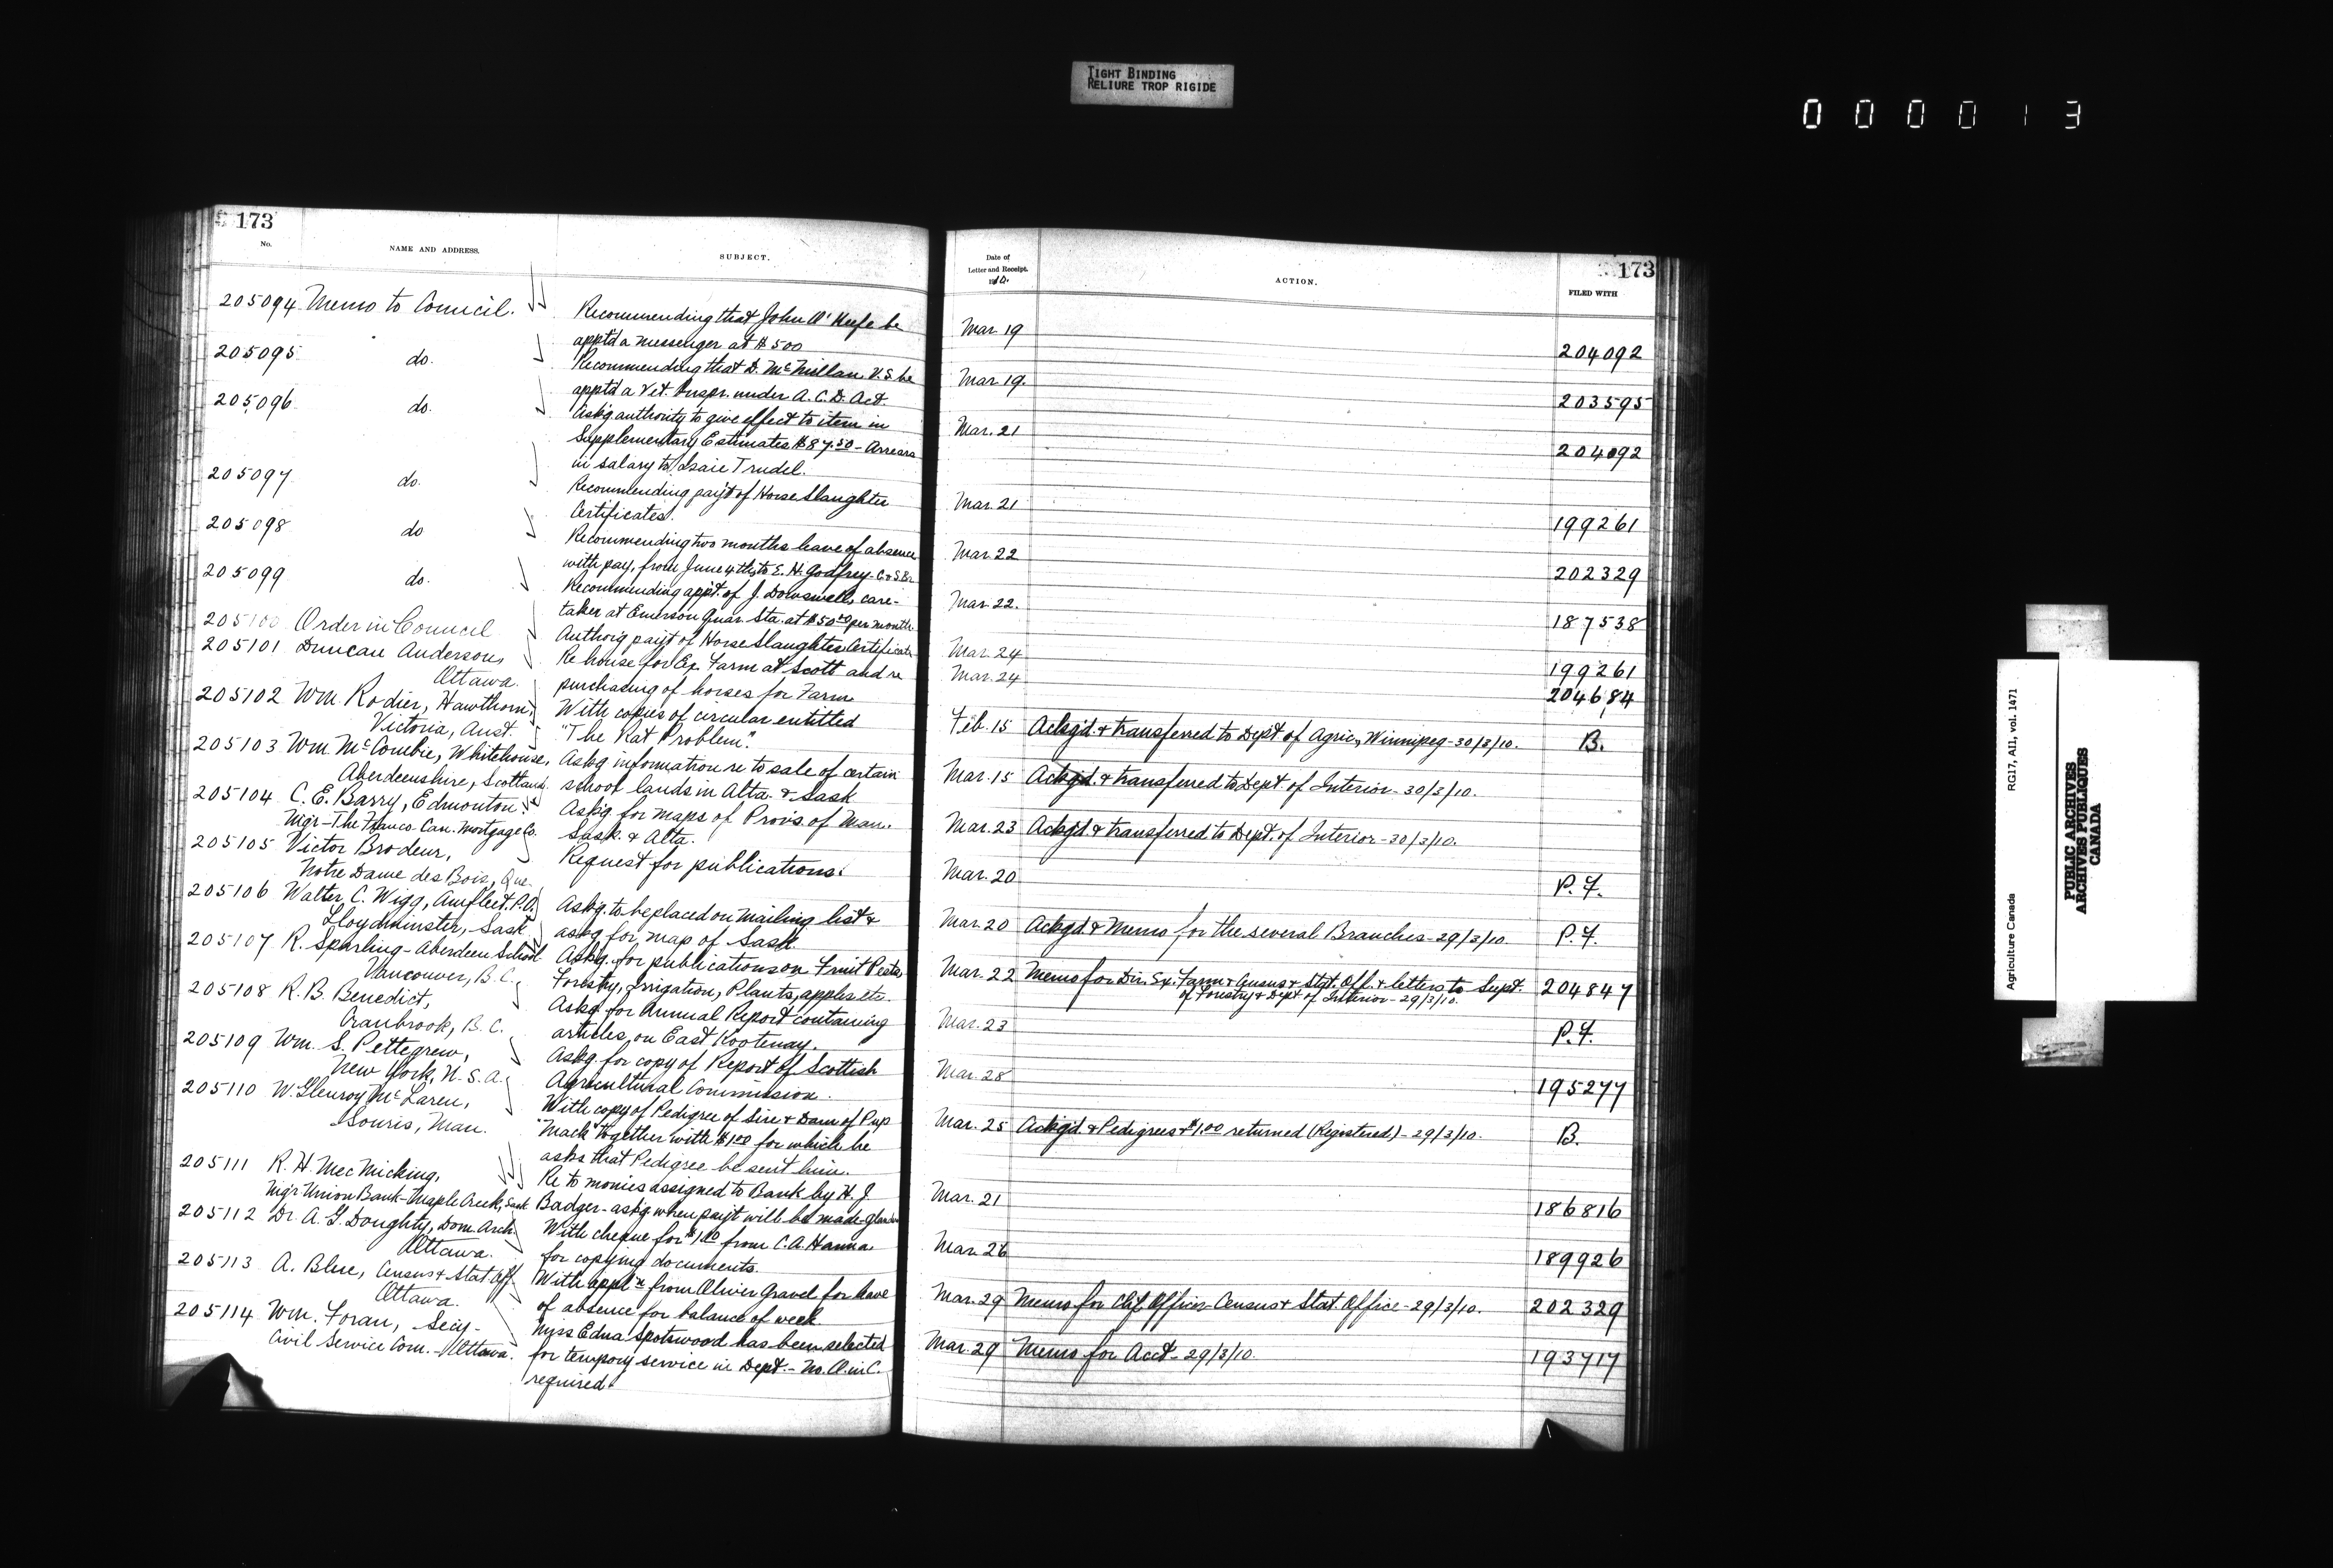 TIGHT BINDING
RELIURE TROP RIGIDE
000013
173
No.
NAME AND ADDRESS.
SUBJECT.
205094 Memo to Council.
Recommending that John O'Keefe be
apptd a messenger at $500
205095 do.
Recommending that D. McMillan V.S. be
apptd a Vet. Inspr. under A.C.D. Act.
205096 do.
Ask'g authority to give effect to item in
Supplementary Estimates $87.50 - Arrears
in salary to Isaie Trudel.
205097 do.
Recommending pay't of Horse Slaughter
Certificates.
205098 do
Recommending two months leave of absence
with pay, from June 4th, to E. H. Godfrey - C. & S. Br.
205099 do.
Recommending appt. of J. Dowswell, care-
taker at Emerson Quar. Sta. at $50.00 per month
205100 Order in Council
Authorig pay't of Horse Slaughter Certificate
205101 Duncan Anderson,
Ottawa.
Re house for Ex. Farm at Scott and re
purchasing of horses for Farm
205102 Wm. Rodier, Hawthorn,
Victoria, Aust.
With copies of circular entitled
"The Rat Problem".
205103 Wm. McCombie, Whitehouse,
Aberdeenshire, Scotland.
Ask'g information re to sale of certain
school lands in Alta. & Sask
205104 C. E. Barry, Edmonton.
Mgr - The Franco-Can. Mortgage Co.
Ask'g for maps of Provs. of Man.
Sask. & Alta.
205105 Victor Brodeur,
Notre Dame des Bois, Que.
Request for publications.
205106 Walter C. Wigg, Amfleet. P.O.
Lloydminster, Sask
Ask'g. to be placed on mailing list &
ask'g for map of Sask
205107 R. Sparling - Aberdeen School
Vancouver, B.C.
Ask'g. for publications on Fruit Pests,
Forestry, Irrigation, Plants, apples etc.
205108 R. B. Benedict,
Cranbrook, B.C.
Ask'g for Annual Report containing
articles on East Kootenay.
205109 Wm. S. Pettegrew,
New York, U.S.A.
Ask'g. for copy of Report of Scottish
Agricultural Commission.
205110 W. Glenroy McLaren,
Souris, Man.
With copy of Pedigree of Sire & Dam of Pup
"Mack" together with $1.00 for which he
asks that Pedigree be sent him.
205111 R. H. MacMicking,
Mgr Union Bank - Maple Creek, Sask
Re to monies assigned to Bank by H. J.
Badger - ask'g when pay't will be made - Glanders
205112 Dr. A. G. Doughty, Dom. Arch.
Ottawa.
With cheque for $1.00 from C. A. Hanna
for copying documents.
205113 A. Blue, Census & Stat. Off.
Ottawa.
With appl'n from Oliver Gravel for leave
of absence for balance of week
205114 Wm. Foran, Secy -
Civil Service Com. - Ottawa.
Miss Edna Spotswood has been selected
for tempory service in Dept. - No O. in C.
required.
173
Date of
Letter and Receipt.
1910.
ACTION.
FILED WITH
Mar. 19 204092
Mar. 19. 203595
Mar. 21 204092
Mar. 21 199261
Mar. 22 202329
Mar. 22. 187538
Mar. 24 199261
Mar. 24 204684
Feb. 15 Ackg'd. & transferred to Dept. of Agric, Winnipeg - 30/3/10. B.
Mar. 15 Ackg'd. & transferred to Dept. of Interior - 30/3/10.
Mar. 23 Ackg'd & transferred to Dept. of Interior - 30/3/10.
Mar. 20 P.F.
Mar. 20 Ackg'd & Memo for the several Branches - 29/3/10. P.F.
Mar. 22 Memo for Dir. Ex. Farm & Census & Stat. Off. & letters to Supt. 204847
of Forestry & Dept of Interior - 29/3/10.
Mar. 23 P.F.
Mar. 28 195277
Mar. 25 Ackg'd & Pedigrees & $1.00 returned (Registered) - 29/3/10. B.
Mar. 21 186816
Mar. 26 189926
Mar. 29 Memo for Chf. Officer Census & Stat Office - 29/3/10. 202329
Mar. 29 Memo for Acct - 29/3/10. 193717
Agriculture Canada RG17, AI1, vol. 1471
PUBLIC ARCHIVES
ARCHIVES PUBLIQUES
CANADA